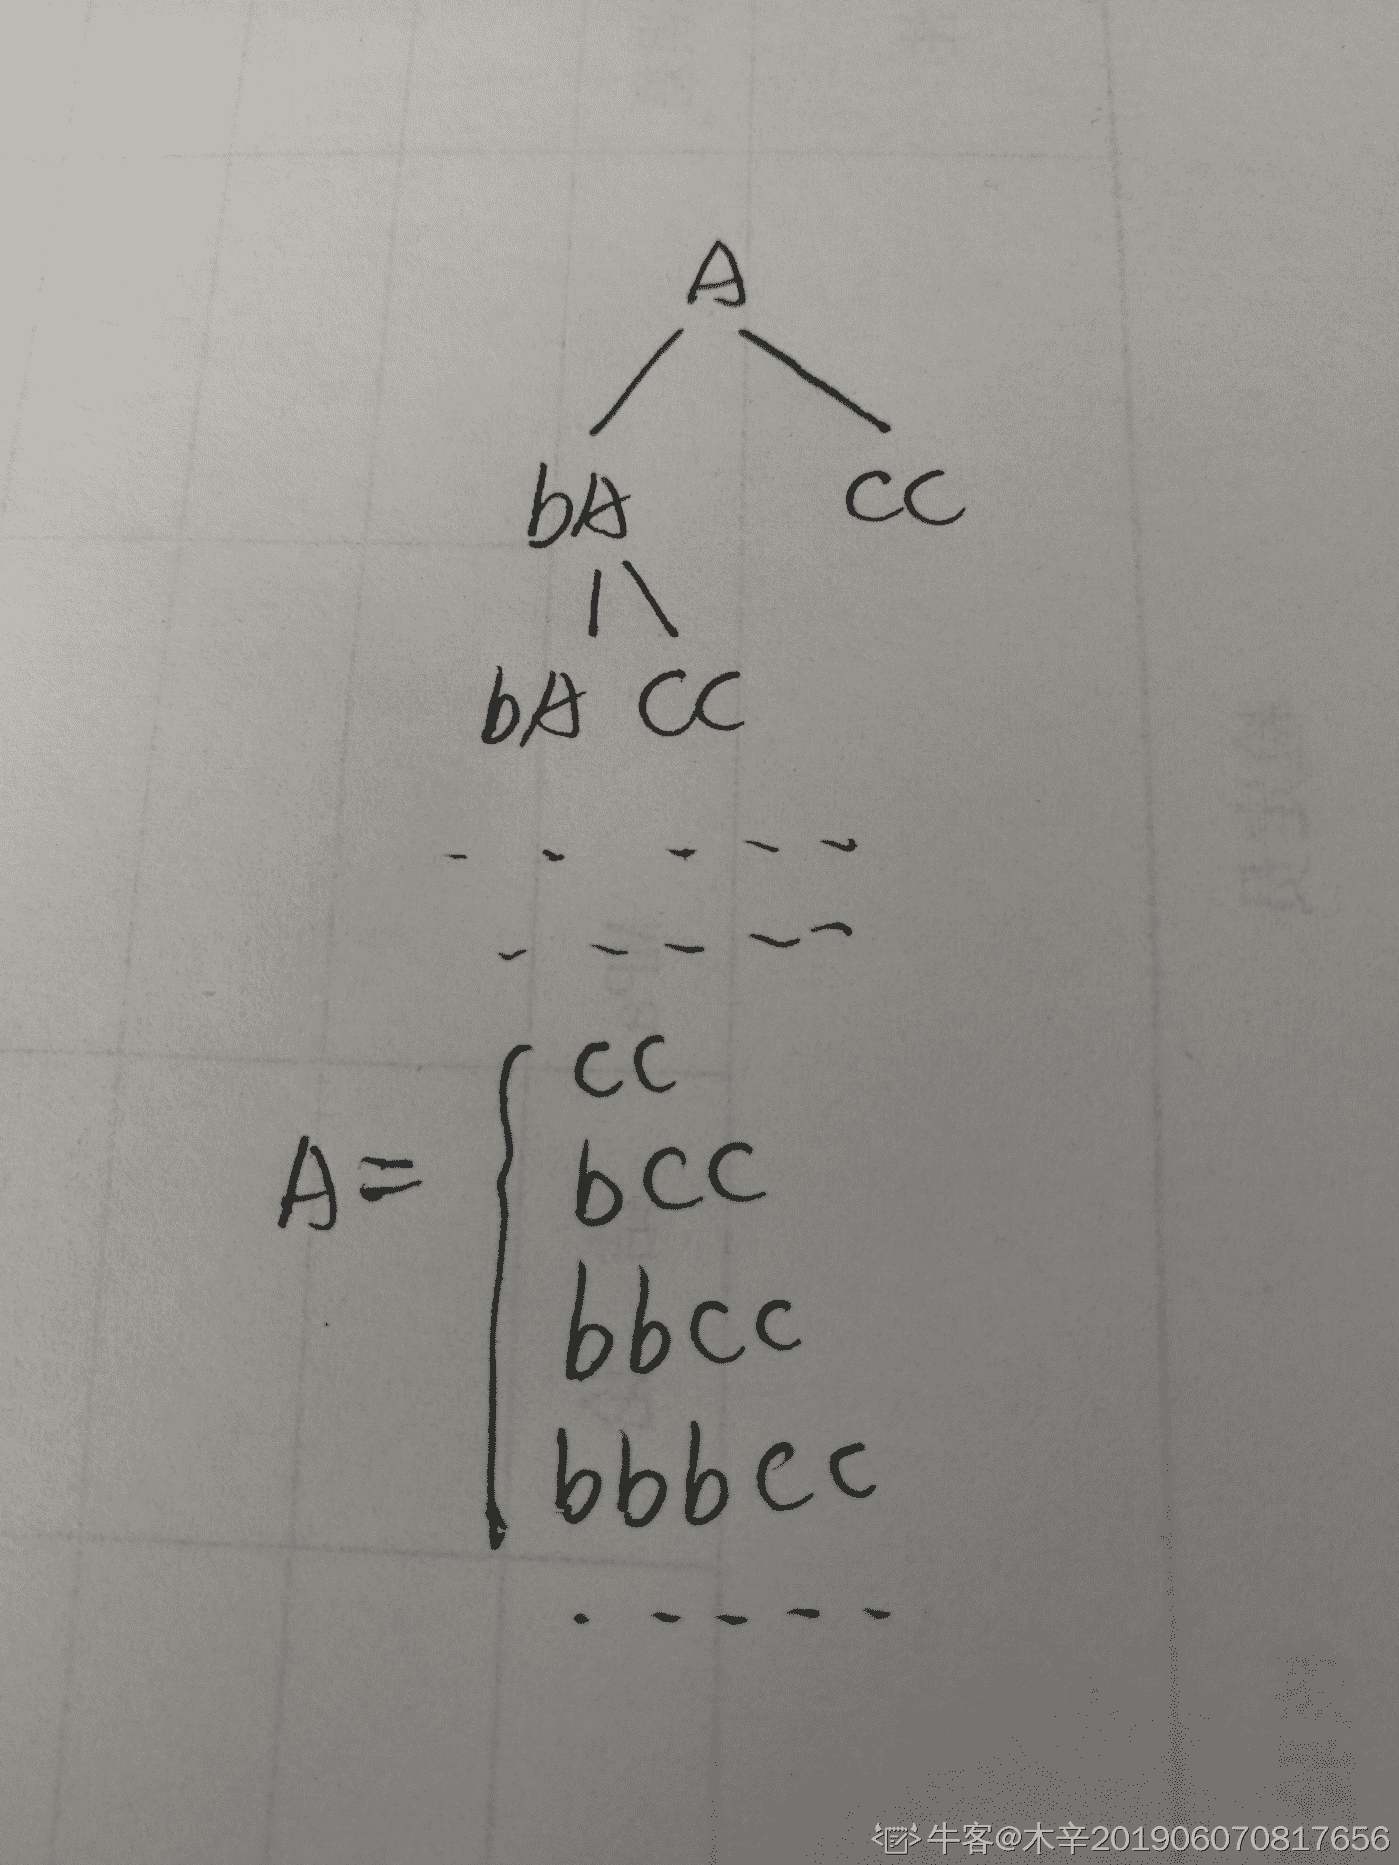 A
bA CC
bA CC
A= { cc
bcc
bbcc
bbbcc
牛客@木辛201906070817656